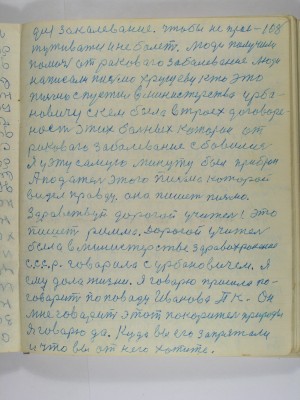 дил закалевание. чтобы не прас- 108
тужевати и не болет. люди получили
помоч от ракового забалевание люди
написали письмо хрущеву кто это
письмо спустил в министерства урба-
новичу с кем была встроех договоре-
ность этих больных которые от
ракового заболевание сбовились
Я уэту самую минуту был прибран
А податель этого письма которой
видел правду. она пишет писмо.
Здравствуй дорогой учител! это
пишет римма. дорогой учител
была в министерстве здравохронение
с.с.с.р. говарила с урбановичем. я
ему дала жизни. Я говорю пришла по-
говарит по поваду Иванова П.К. Он
мне говарит этот покоритель природы
Я говарю да. Куда вы его запрятали
и что вы от него хотите.